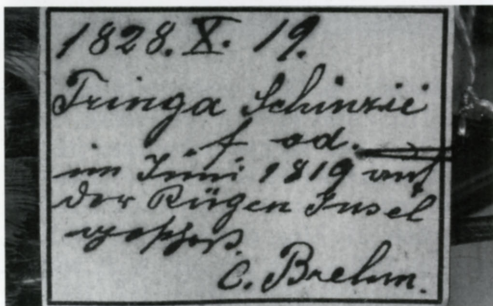 1828. X. 19.
Tringa Schinzii
f ad.
im Juni 1819 auf
der Rügen Insel
geschoß.
C. Brehm.